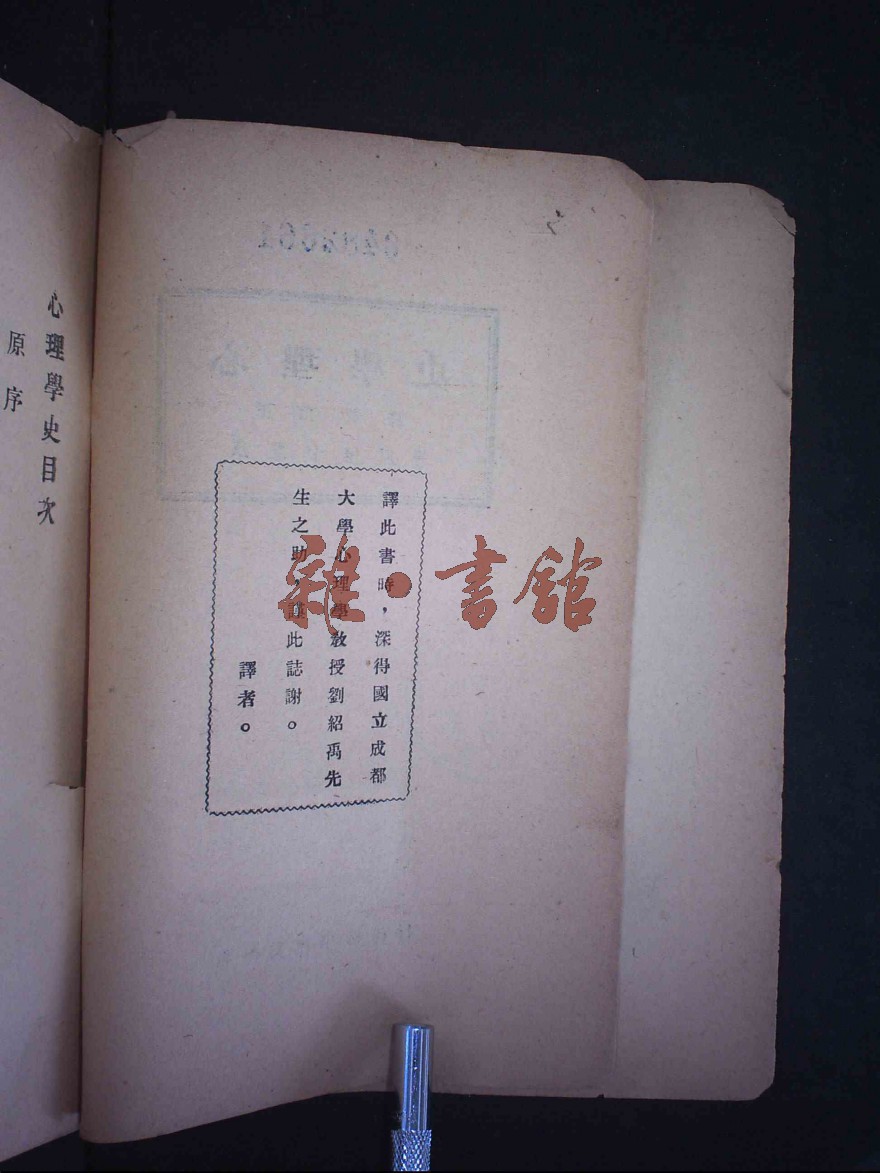 譯此書時，深得國立成都
大學心理學教授劉紹禹先
生之助，謹此誌謝。
譯者。
心理學史目次
原序
雜·書館